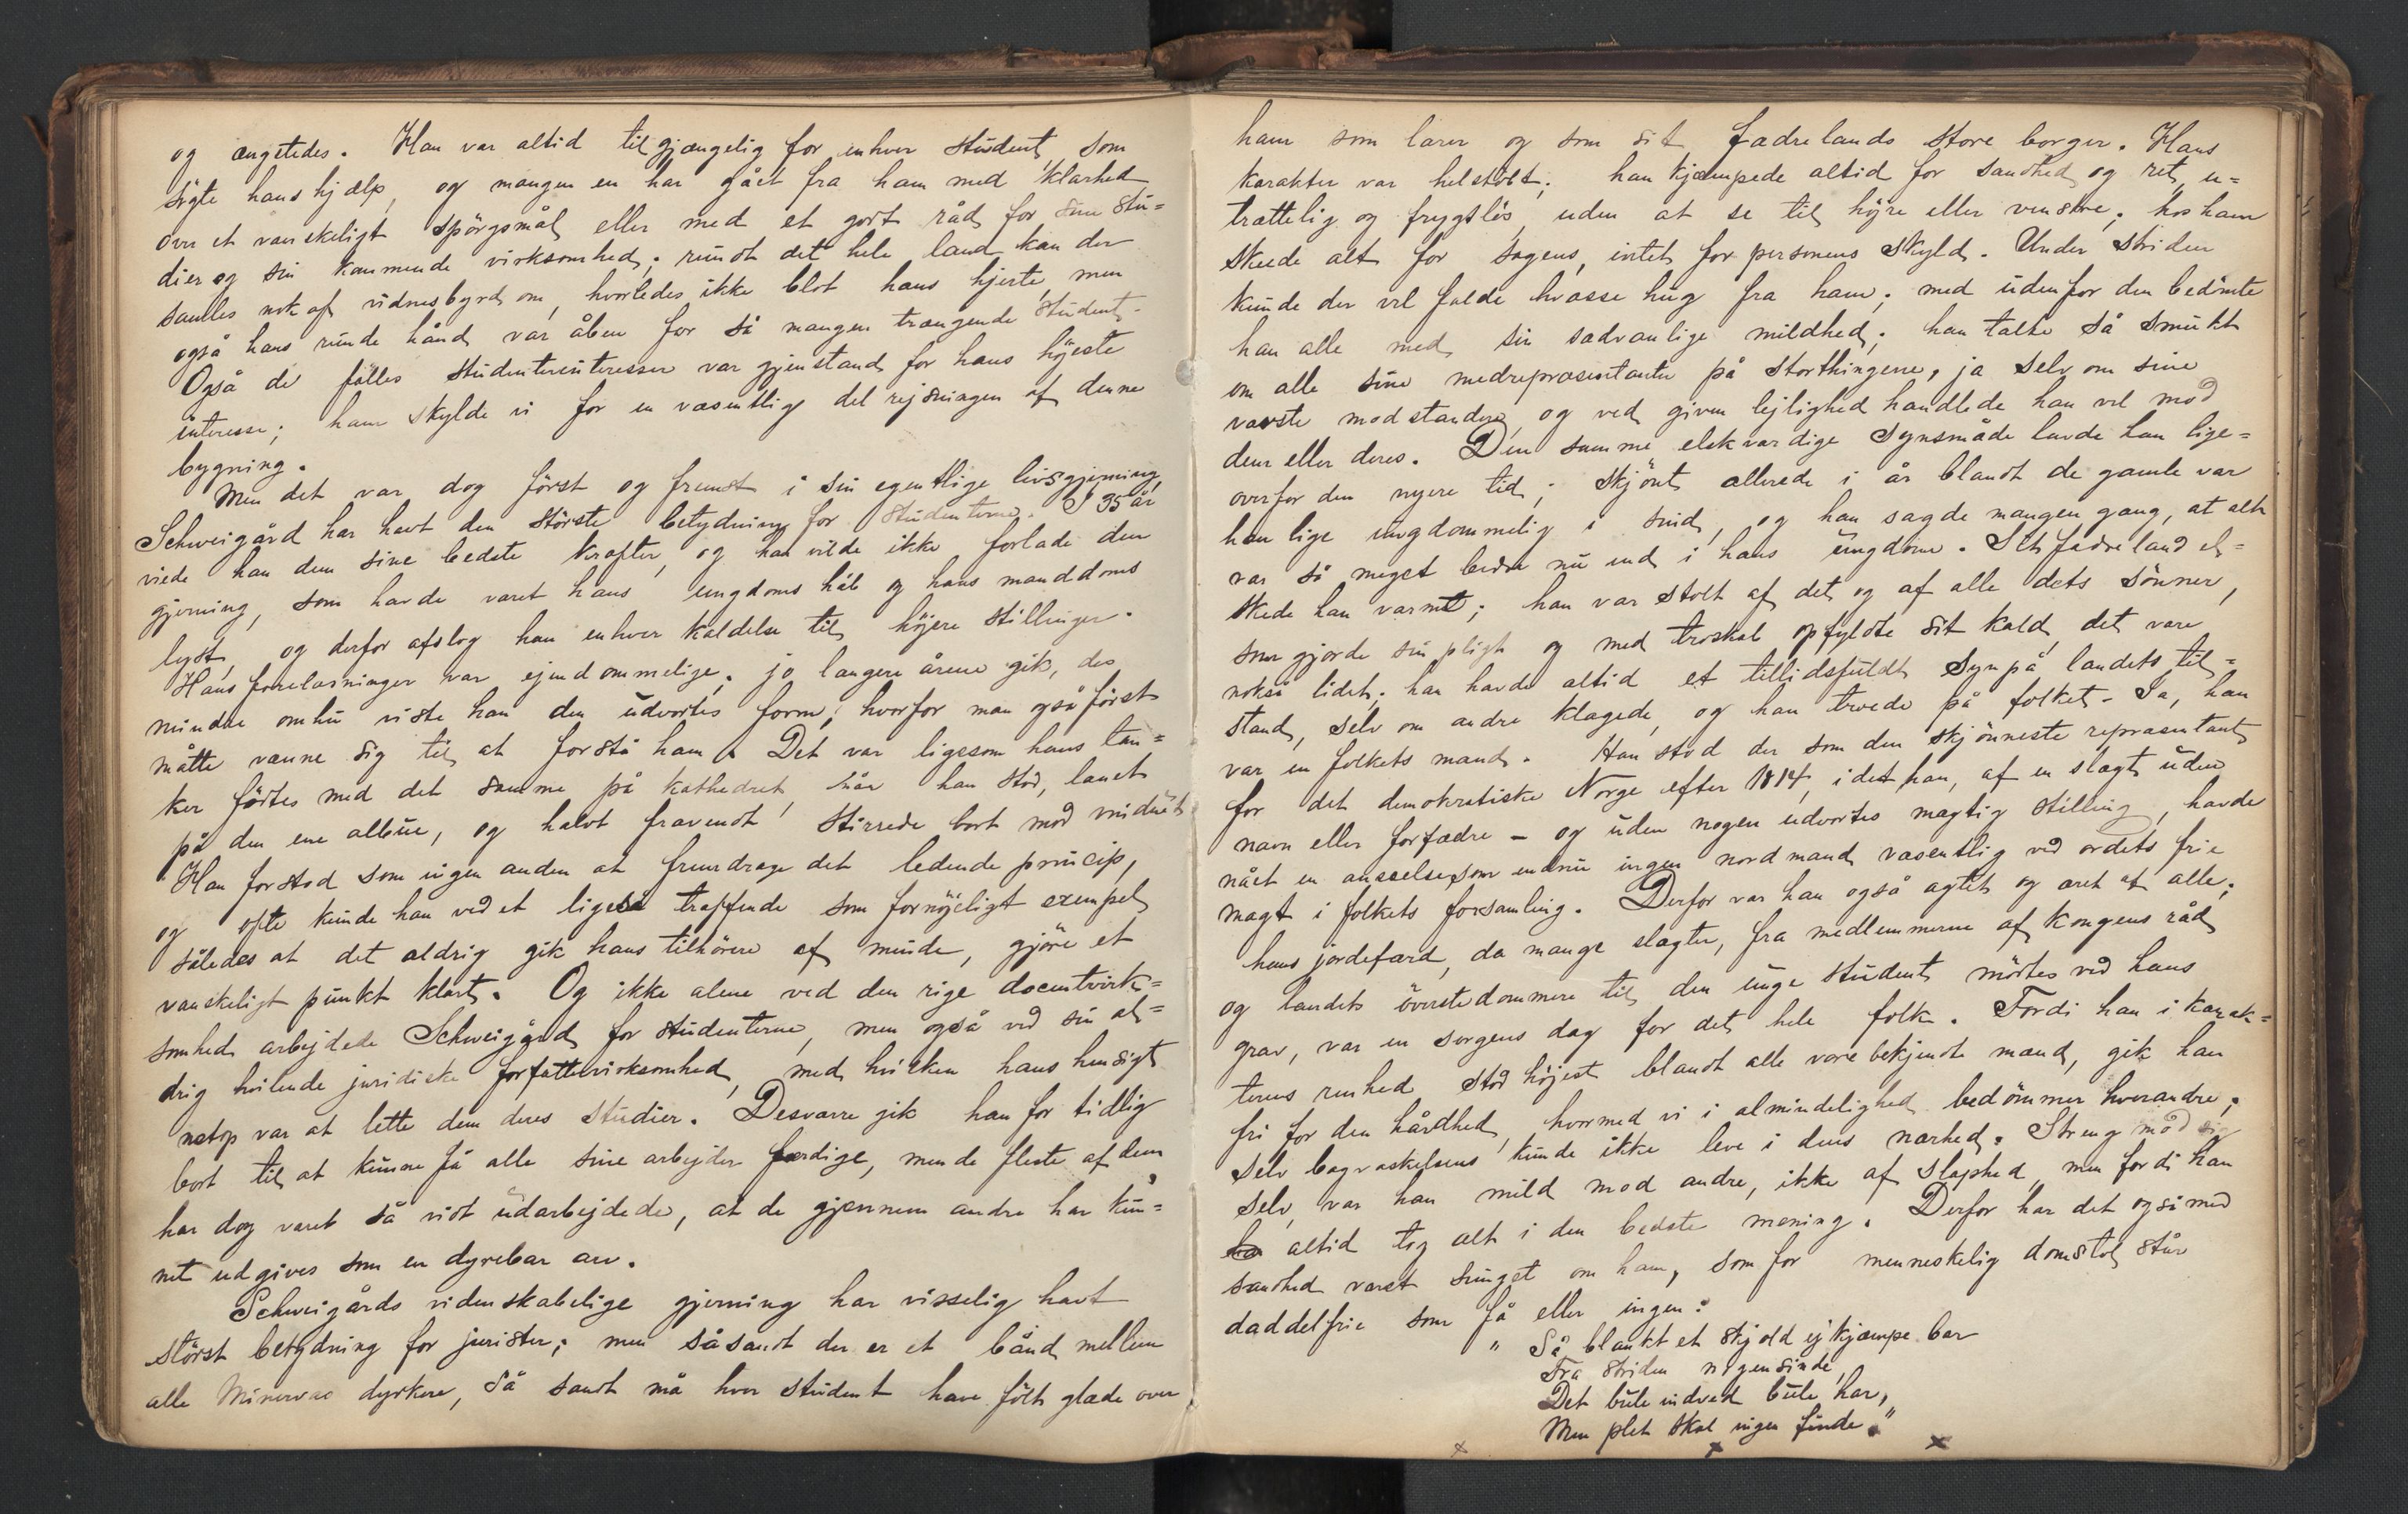 og ængstedes. Han var altid tilgjængelig for enhver student, som
søgte hans hjælp, og mangen en har gået fra ham med klarhed
over et vanskeligt spörgsmål eller med et godt råd for sine stu=
dier og sin kommende virksomhed; rundt det hele land kan der
samles nok af vidnesbyrd om, hvorledes ikke blot hans hjerte, men
også hans runde hånd var åben for så mangen trængende student.
Også de fælles studenterinteresser var gjenstand for hans höjeste
interesse; ham skylde vi for en væsentlig del rejsningen af denne
bygning.
Men det var dog först og fremst i sin egentlige livsgjerning,
Schweigård har havt den störste betydning for studenterne. I 35 år
viede han dem sine bedste kræfter, og han vilde ikke forlade den
gjerning, som havde været hans ungdoms håb og hans manddoms
lyst, og derfor afslog han enhver kaldelse til höjere stillinger.
Hans forelæsninger var ejendommelige. jo længere årene gik, des
mindre omhu viste han den udvortes form; hvorfor man også först
måtte vænne sig til at forstå ham. Det var ligesom hans tan=
ker fødtes med det samme på kathedret, når han stod, lænet
på den ene albue, og halvt fravendt stirrede bort mod vinduet.
Han forstod som ingen anden at fremdrage det ledende princip,
og ofte kunde han ved et ligeså træffende som fornöjeligt exempel,
således at det aldrig gik hans tilhörere af minde, gjöre et
vanskeligt punkt klart. Og ikke alene ved den rige docentvirk=
somhed arbejdede Schweigård for studenterne, men også ved sin al=
drig hvilende juridiske forfattervirksomhed, med hvilken hans hensigt
netop var at lette dem deres studier. Desværre gik han for tidlig
bort til at kunne få alle sine arbejder færdige, men de fleste af dem
har dog været så vidt udarbejdede, at de gjennem andre har kun=
net udgives som en dyrebar arv.
Schweigårds videnskabelige gjerning har visselig havt
störst betydning for jurister; men såsandt der er et bånd mellem
alle Minervas dyrkere, så sandt må hver student have følt glæde over
ham som lærer og som sit fædrelands store borger. Hans
karakter var helstöbt; han kjæmpede altid for sandhed og ret, u=
trættelig og frygtlös, uden at se til höjre eller venstre; hos ham
skede alt for sagens, intet for personens skyld. Under striden
kunde der vel falde hvasse hug fra ham; med udenfor den bedömte
han alle med sin sædvanlige mildhed; han talte så smukt
om alle sine medrepræsentanter på storthingene, ja selv om sine
værste modstandere, og ved given lejlighed handlede han vel mod
dem eller deres. Den samme elskværdige synsmåde havde han lige=
overfor den nyere tid; skjönt allerede i år blandt de gamle var
han lige ungdommelig i sind, og han sagde mangen gang, at alt
var så meget bedre nu end i hans ungdom. Sit fædreland el=
skede han varmt; han var stolt af det og af alle dets sönner,
som gjorde sin pligt og med troskab opfyldte sit kald, det være
nokså lidet; han havde altid et tillidsfuldt syn på landets til=
stand, selv om andre klagede, og han troede på folket. Ja, han
var en folkets mand. Han stod der som den skjönneste repræsentant
for det demokratiske Norge efter 1814, idet han, af en slægt uden
navn eller forfædre – og uden nogen udvortes mægtig stilling, havde
nået en anseelse, som endnu ingen nordmand væsentlig ved ordets frie
magt i folkets forsamling. Derfor var han også agtet og æret af alle;
hans jordefærd, da mange slægter, fra medlemmerne af kongens råd
og landets överste dommere til den unge student, mödtes ved hans
grav, var en sorgens dag for det hele folk. Fordi han i karak=
terens renhed stod höjest blandt alle vore bekjendte mænd, gik han
fri for den hårdhed, hvormed vi i almindelighed bedömmer hverandre;
selv bagvaskelsens kunde ikke leve i dens nærhed. Streng mod sig
selv, var han mild mod andre, ikke af slaphed, men fordi han
altid tog alt i den bedste mening. Derfor har det også med
sandhed været sunget om ham, som for menneskelig domstol står
daddelfrie som få eller ingen:
" Så blankt et skjold ej kjæmpe bar
Fra striden nogensinde,
Det bule indved bule har,
Men plet skal ingen finde."
x x x